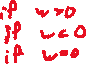 if w>0
if w<0
if w=0